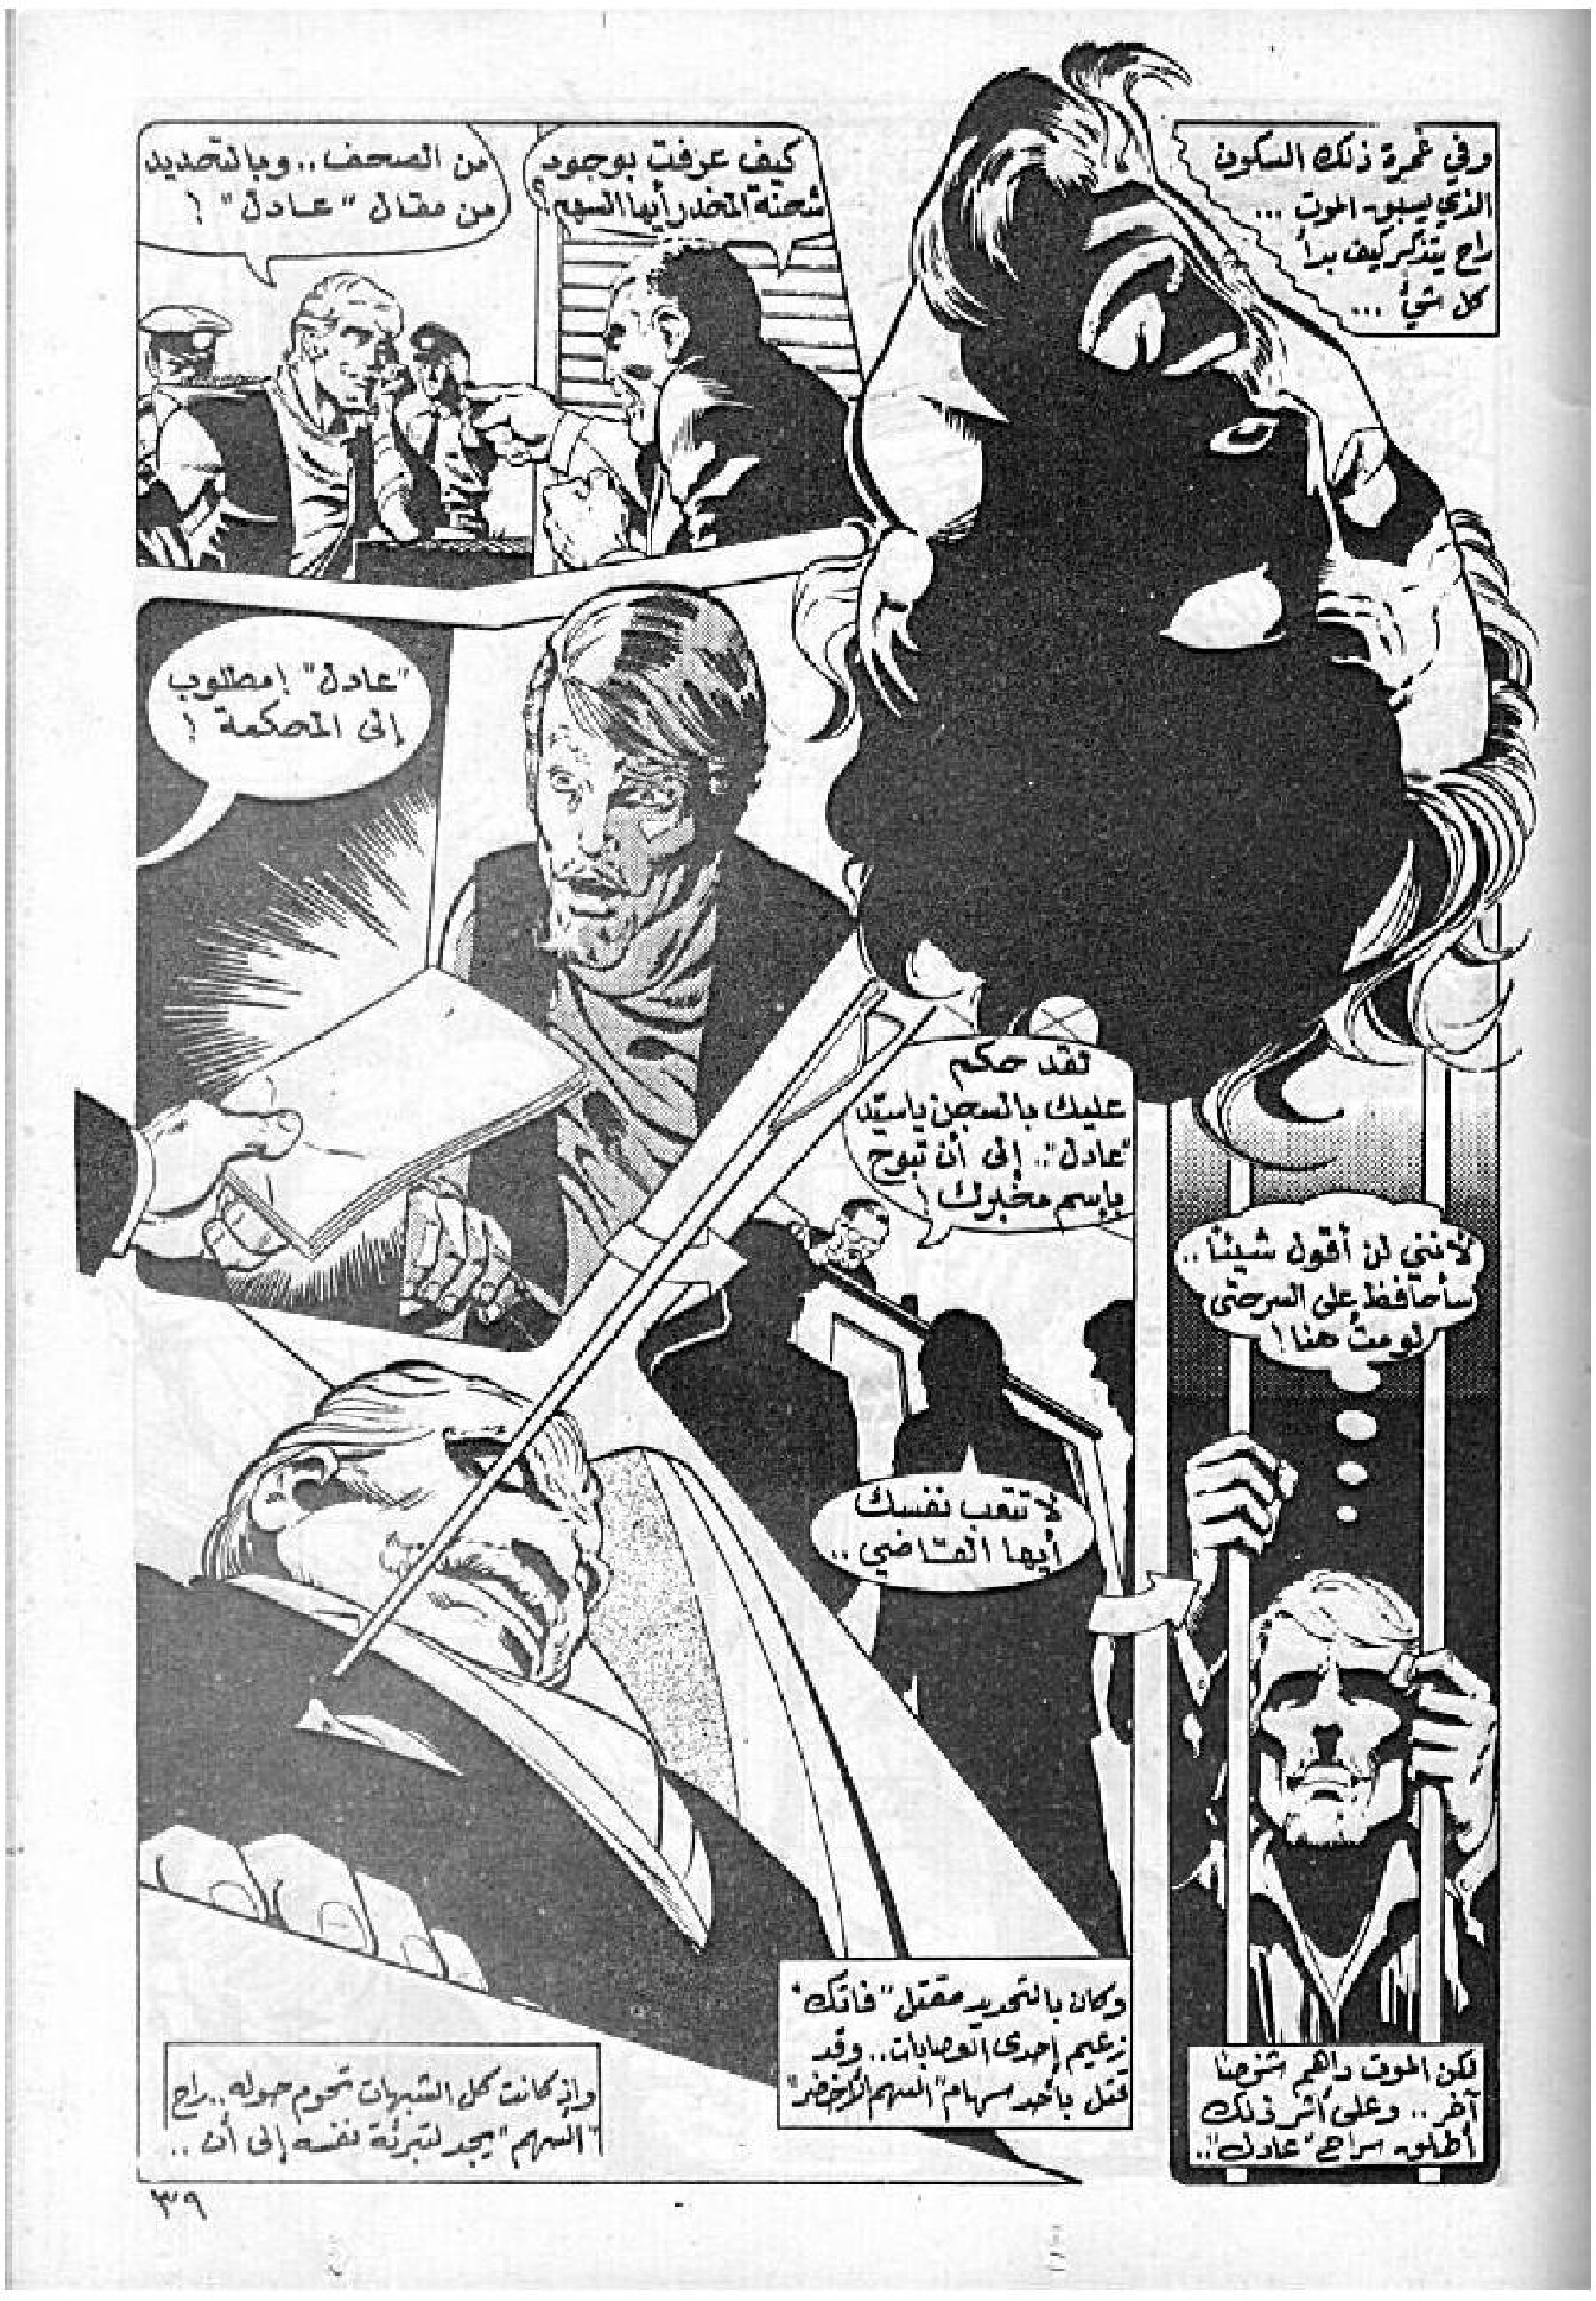 وفي غمرة ذلك السكون
الذي يسبق الموت ...
راح يتذكر كيف بدأ
كل شيء ...
كيف عرفت بوجود
شحنة المخدر أيها السهم؟
من الصحف.. وبالتحديد
من مقال "عادل" !
"عادل" ! مطلوب
إلى المحكمة !
لقد حكم
عليك بالسجن يا سيد
"عادل".. إلى أن تبوح
باسم مخبرك !
لا تتعب نفسك
أيها القاضي ..
لأنني لن أقول شيئا ..
سأحافظ على السر حتى
لو مت هنا !
لكن الموت داهم شخصا
آخر .. وعلى أثر ذلك
أطلق سراح "عادل"..
وكان بالتحديد مقتل "فاتك"
زعيم إحدى العصابات.. وقد
قتل بأحد سهام "السهم الأخضر"
وإذ كانت كل الشبهات تحوم حوله.. راح
"السهم" يجد لتبرئة نفسه إلى أن ..
٣٩